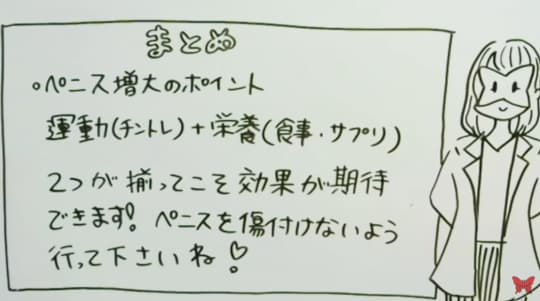 まとめ
○ペニス増大のポイント
運動(チントレ)+栄養(食事・サプリ)
2つが揃ってこそ効果が期待
できます! ペニスを傷付けないよう
行って下さいね!